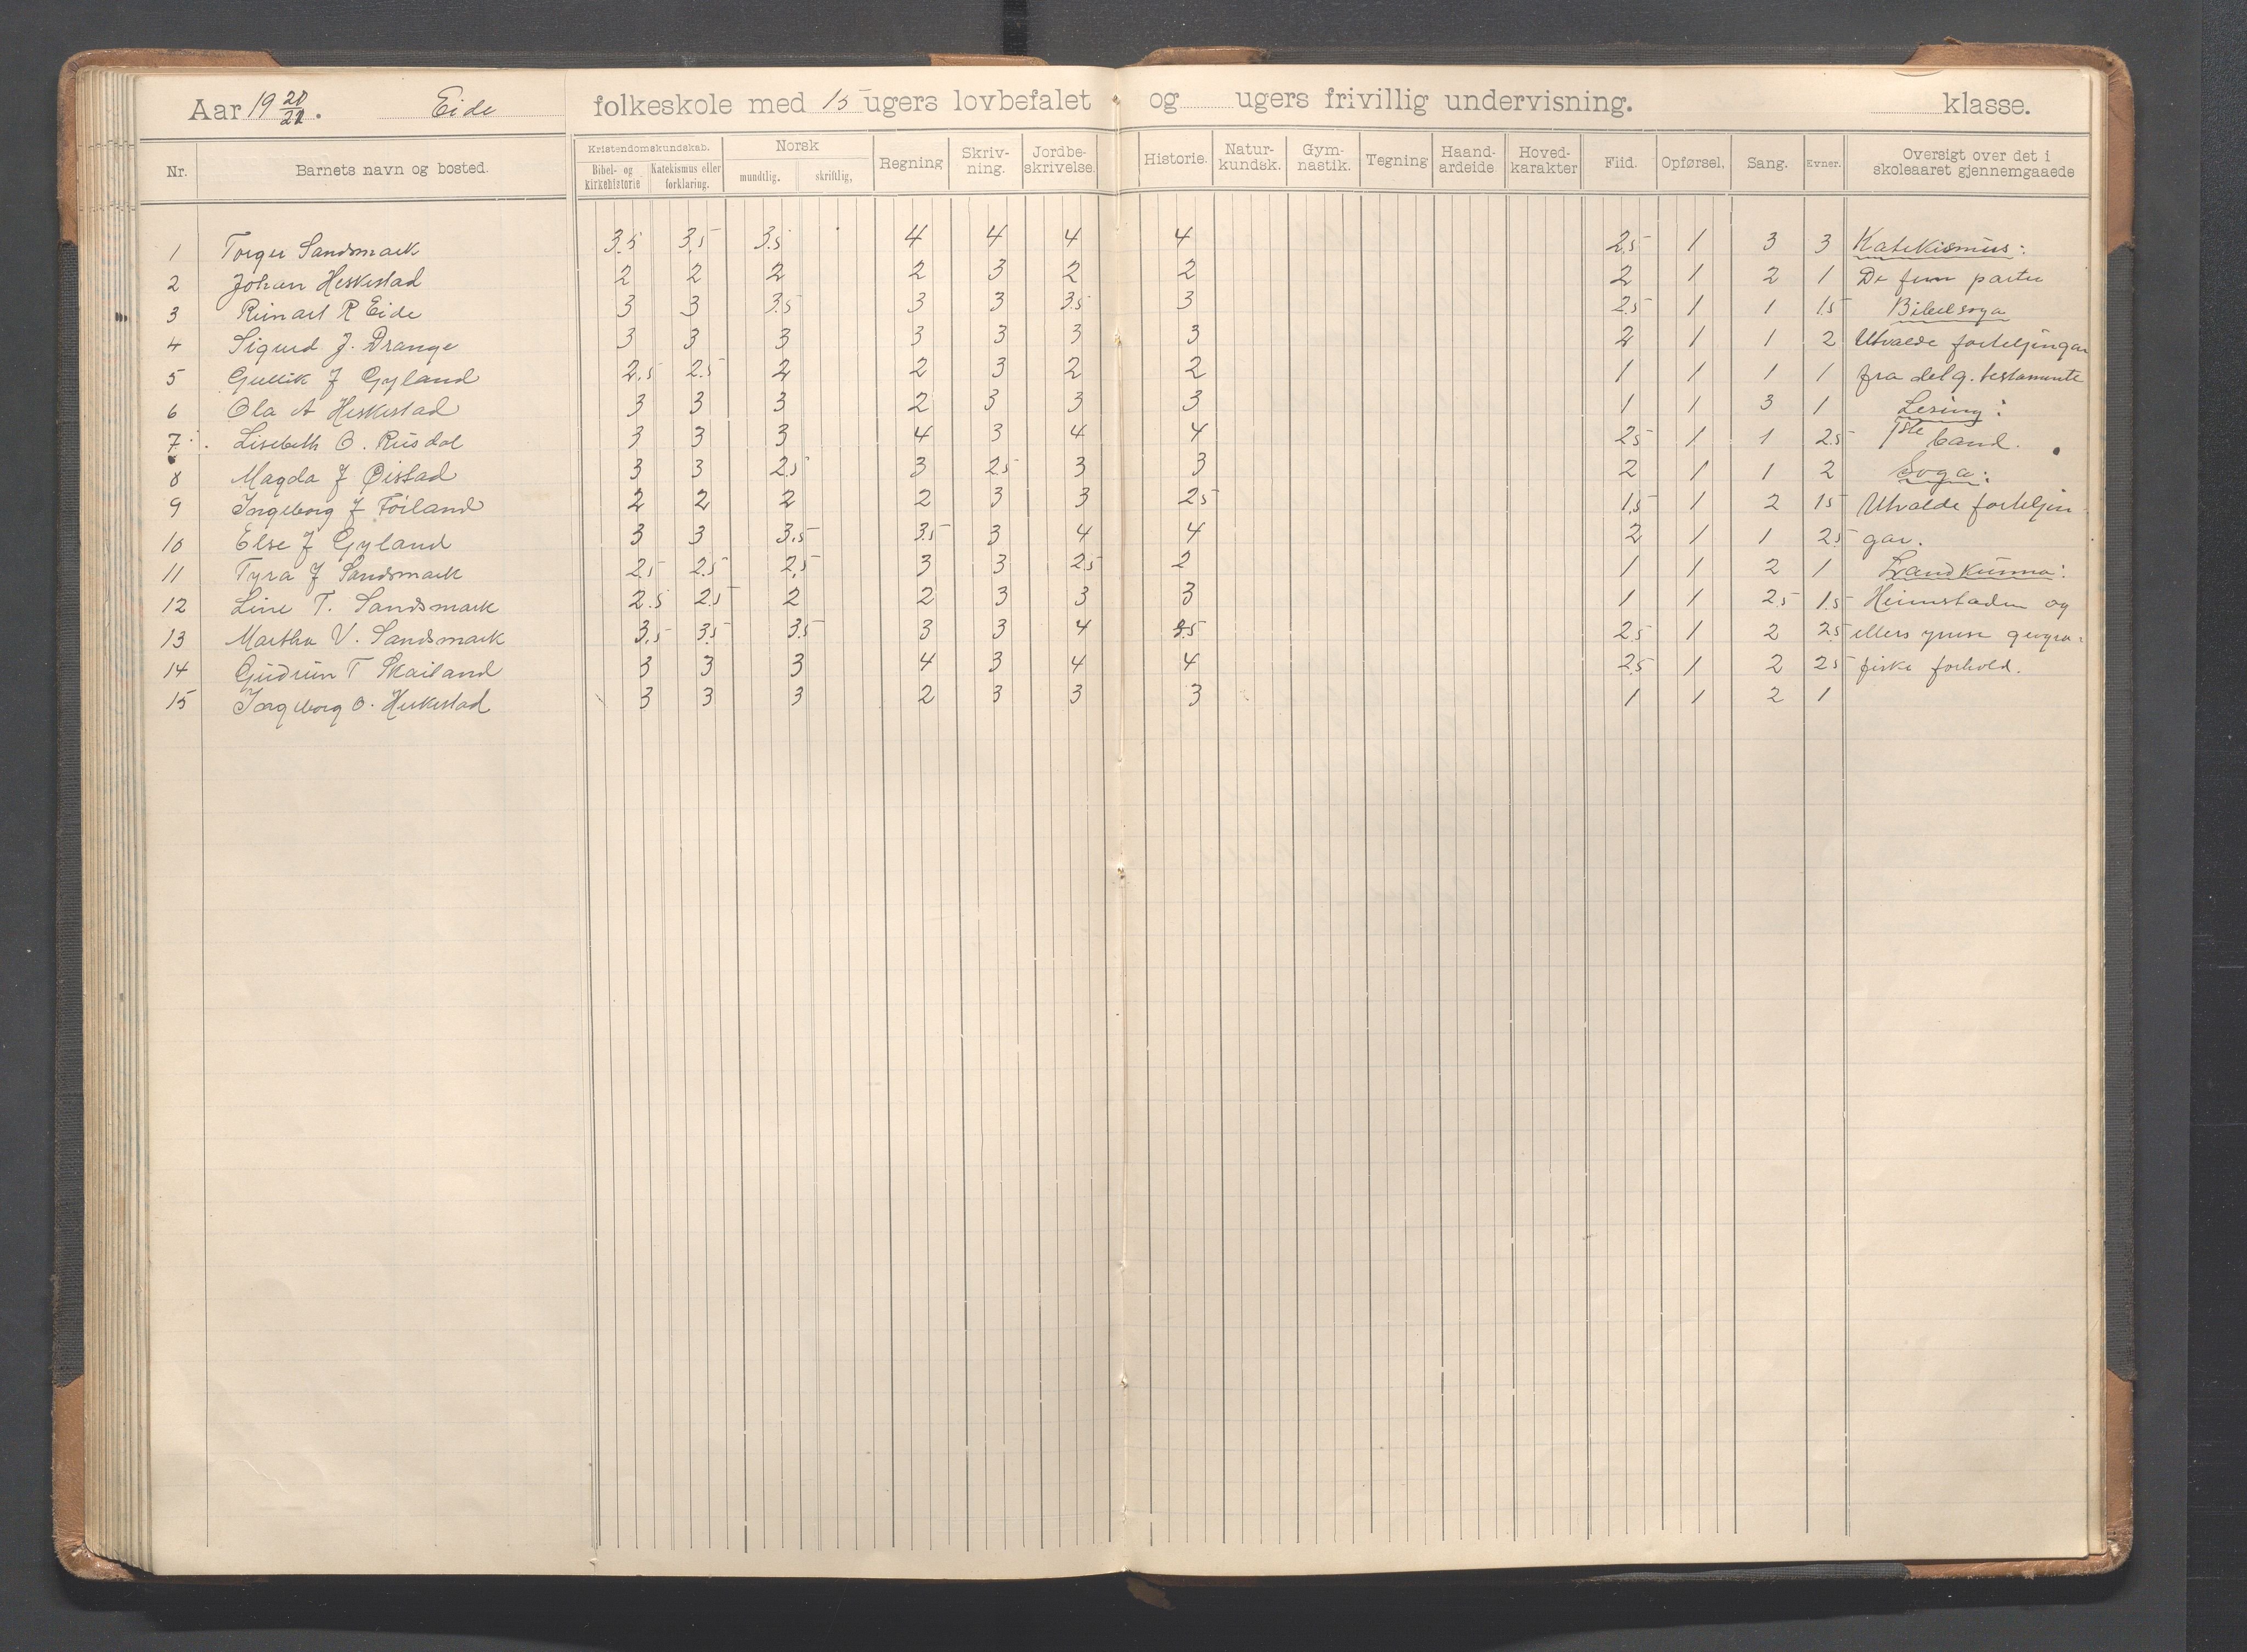 Aar 19 20/21. Eide folkeskole med 15 ugers lovbefalet og ugers frivillig undervisning. klasse.
Nr. Barnets navn og bosted. Kristendomskundskab. Bibel- og kirkehistorie Katekismus eller forklaring. Norsk mundtlig. skriftlig, Regning Skriv-ning. Jordbe-skrivelse. Historie. Natur-kundsk. Gym-nastik. Tegning Haand-ardeide Hoved-karakter Flid. Opførsel. Sang. Evner. Oversigt over det i skoleaaret gjennemgaaede
1 Torger Sandsmark 3.5 3,5 3.5 4 4 4 4 2,5 1 3 3 Katekismus:
2 Johan Heskestad 2 2 2 2 3 2 2 2 1 2 1 De fem parter
3 R Eide 3 3 3.5 3 3 3.5 3 2.5 1 1 1.5 Bibelsoga
4 Sigurd J. Drange 3 3 3 3 3 3 3 2 1 1 2 Utvalde forteljingar
5 Gullik J Gyland 2.5 2.5 2 2 3 2 2 1 1 1 1 fra det g. testamente
6 Ola A Heskestad 3 3 3 2 3 3 3 1 1 3 1 Lesing:
7 Lisebeth O. Rusdal 3 3 3 4 3 4 4 2.5 1 1 2.5 1ste band.
8 Magda J Øistad 3 3 2.5 3 2.5 3 3 2 1 1 2 Soga:
9 Ingeborg J Føiland 2 2 2 2 3 3 2.5 1,5 1 2 1.5 Utvalde forteljin-
10 Else J Gyland 3 3 3.5 3.5 3 4 4 2 1 1 2.5 gar.
11 Tyra J Sandsmark 2.5 2.5 2,5 3 3 2.5 2 1 1 2 1 Landkunna:
12 Line T. Sandsmark 2.5 2.5 2 2 3 3 3 1 1 2.5 1.5 Heimstaden og
13 Martha V. Sandsmark 3.5 3.5 3.5 3 3 4 3.5 2.5 1 2 2.5 ellers ymse geogra-
14 Gudrun T Skailand 3 3 3 4 3 4 4 2.5 1 2 2.5 fiske forhold.
15 Ingeborg O. Heskestad 3 3 3 2 3 3 3 1 1 2 1